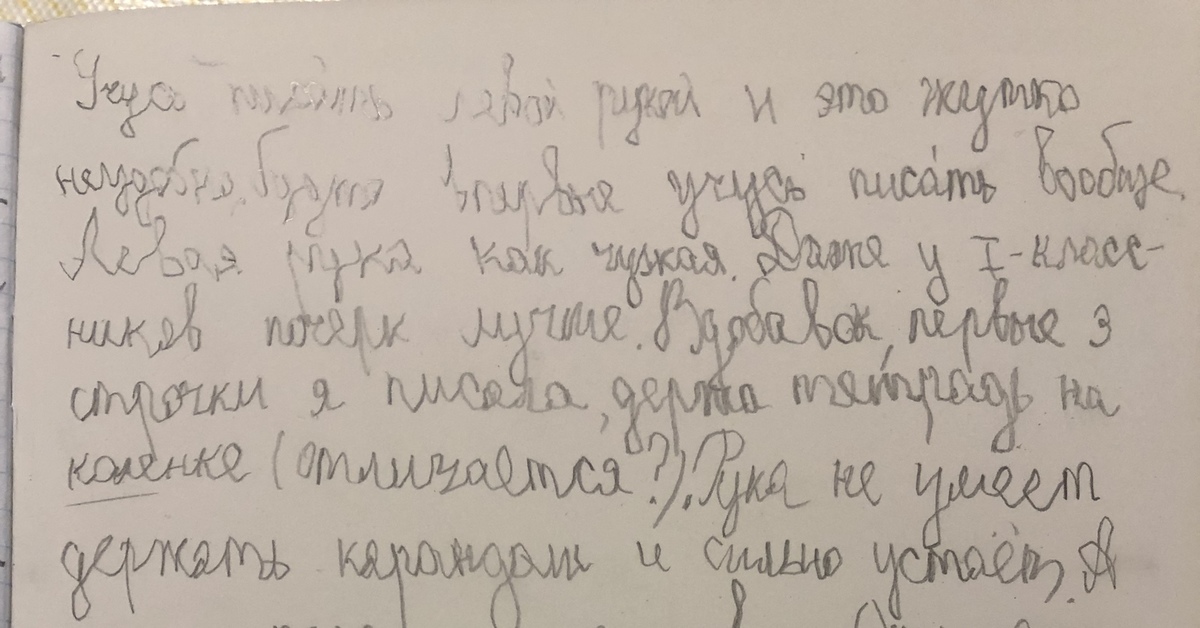 Учусь писать левой рукой и это жутко
неудобно, будто впервые учусь писать вообще.
Левая рука как чужая. Даже у I-класс-
ников почерк лучше. Вдобавок, первые 3
строчки я писала, держа тетрадь на
коленке (отличается?). Рука не умеет
держать карандаш и сильно устаёт. А